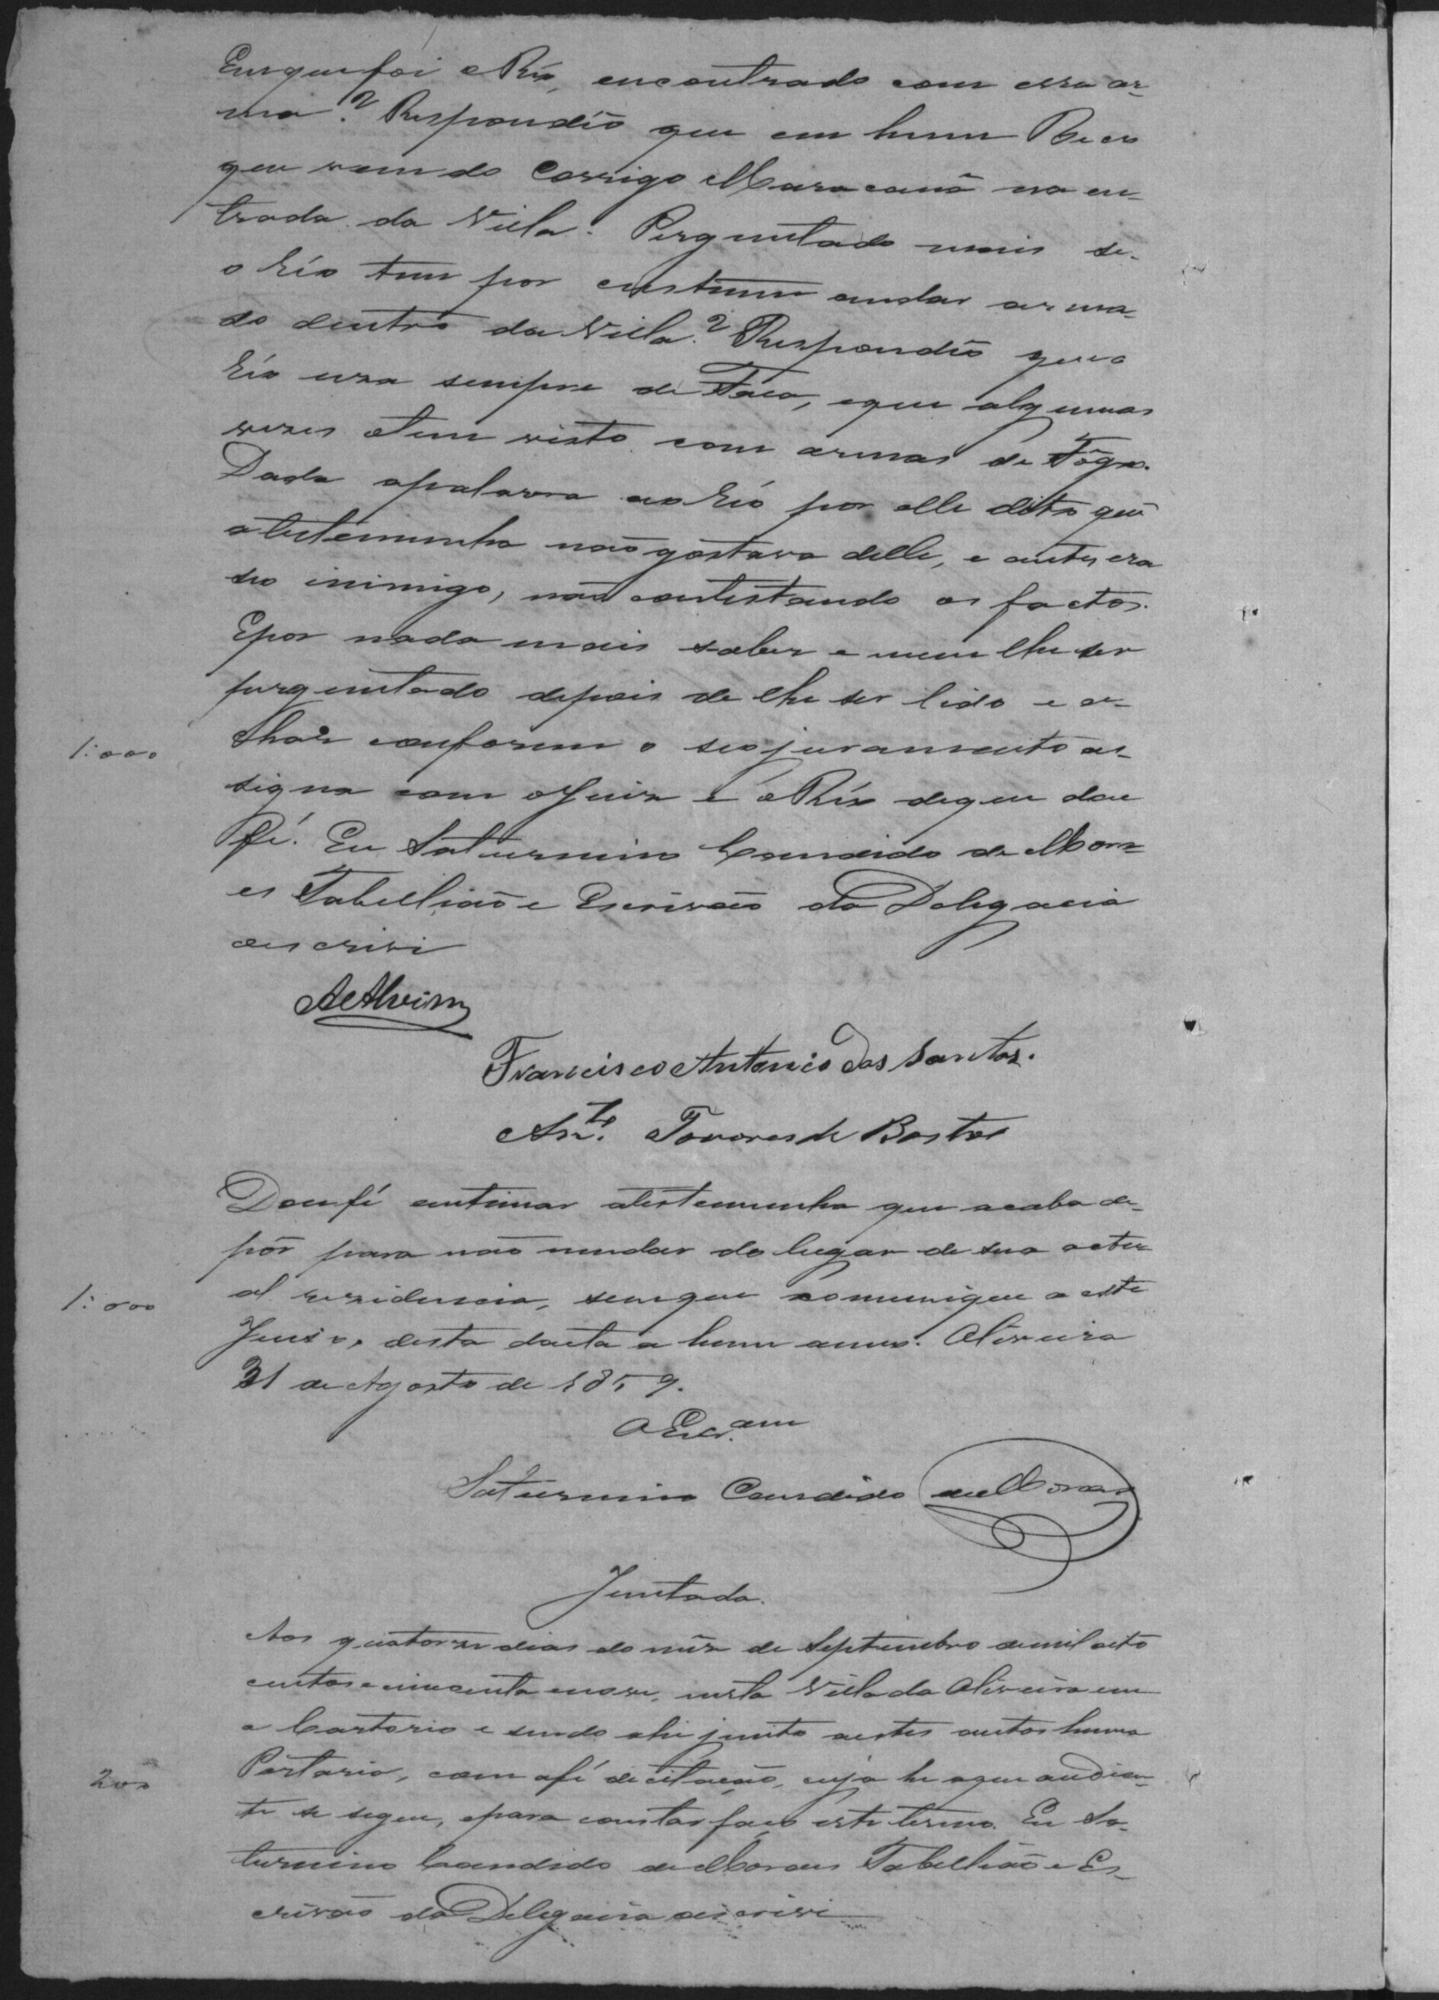 Emque foi o Réo encontrado com essa ar-
ma? Respondêo que em hum Beco
que vem do Corrigo Maracanã na en-
trada da Villa. Perguntado mais se
o Réo tem por custume andar arma-
do dentro da Villa? Respondêo que o
Réo uza sempre de Faca, e que algumas
vezes o tem visto com armas de Fôgo.
Dada apalavra ao Réo por elle dito que
a testemunha não gostava delle, e antes era
seo inimigo, não contestando os factos.
Epor nada mais saber e nem lhe ser
perguntado depois de lhe ser lido e a-
char conforme o seo juramento as-
signa com o Juiz e o Réo de que dou
fé. Eu Saturnino Candido de Mora-
es Tabellião e Escrivão da Delegacia
o escrivi
Francisco Antonio dos Santos.
Ant.º Tavares de Bastos
Dou fé entimar a testemunha que acaba de
pôr para não mudar do lugar de sua actu
al rezidencia, sem que comunique a este
Juizo, desta dacta a hum anno. Oliveira
31 de Agosto de 1859.
O Escr.am
Saturnino Candido de Moraes
Juntada.
Aos quatorze dias do mêz de Septembro de mil oito
centos e cincoenta e nove, nesta Villa da Oliveira em
o Cartorio e sendo ahi junto aestes autos huma
Portaria, com afé de citação, cuja he aque adian-
te se segue, epara constar faço este termo. Eu Sa-
turnino Candido de Moraes Tabellião e Es-
crivão da Delegacia o escrivi
1:000
1:000
200